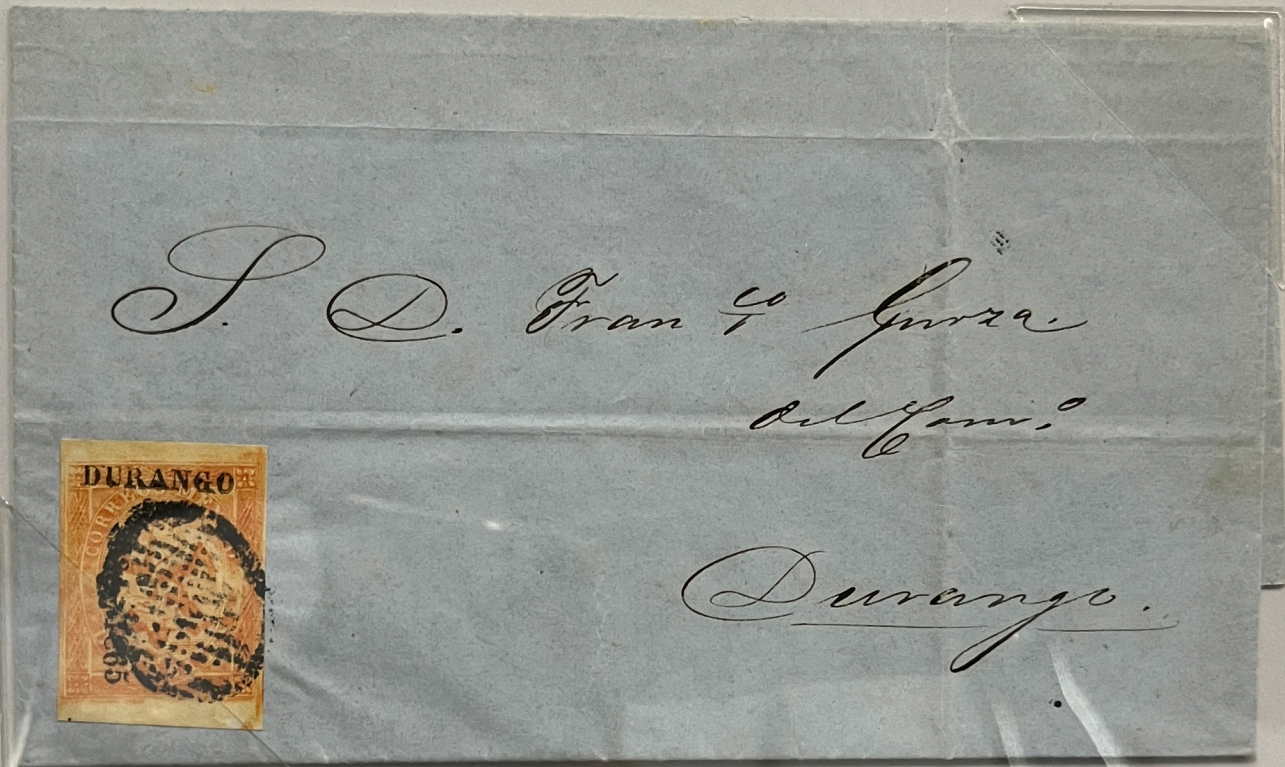 S. D. Franco Gurza.
del Como.
Durango.
DURANGO
CORREO